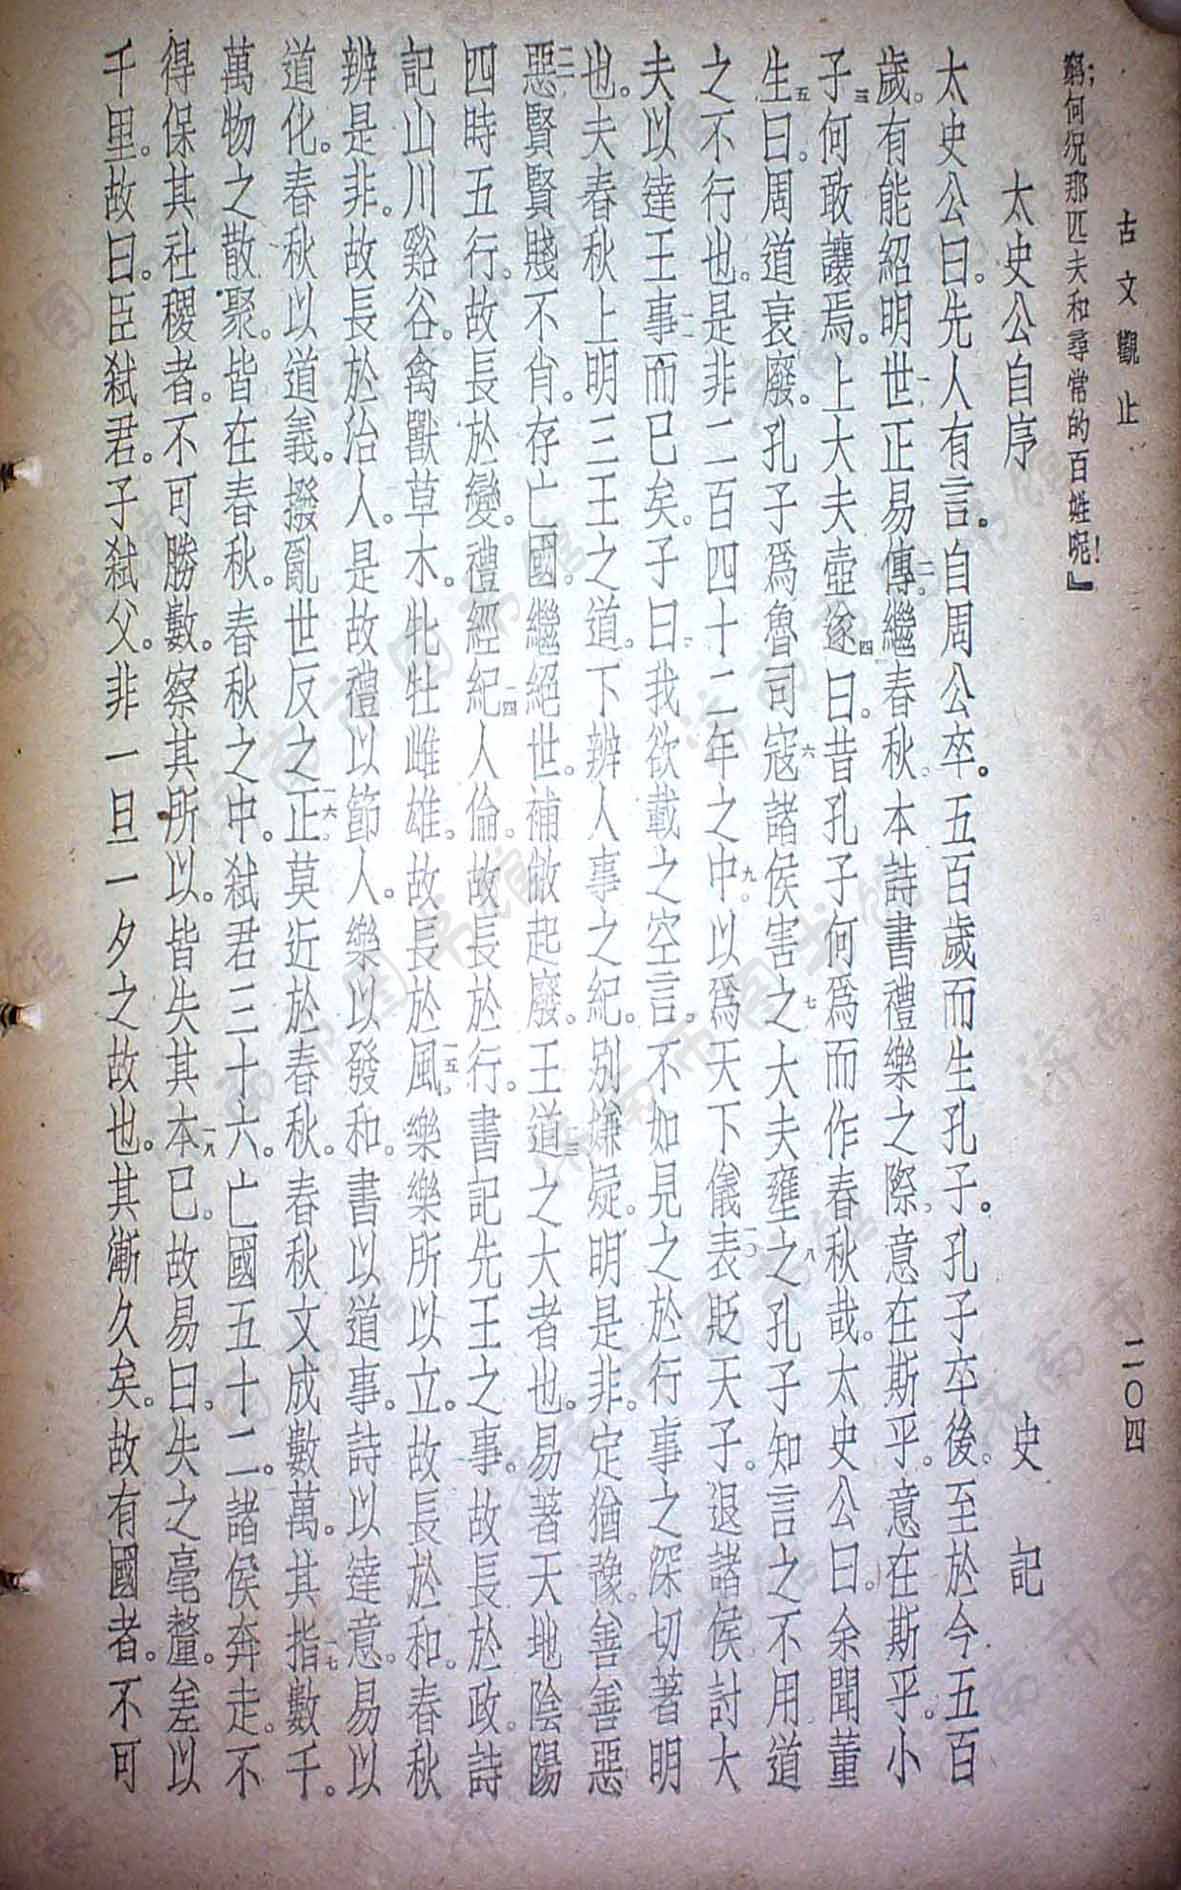 古文觀止 二〇四
窮；何況那匹夫和尋常的百姓呢！』
太史公自序 史記
太史公曰。先人有言。自周公卒。五百歲而生孔子。孔子卒後。至於今五百
歲。有能紹明世一正易傳。二繼春秋。本詩書禮樂之際。意在斯乎。意在斯乎。小
子三何敢讓焉。上大夫壺遂四曰。昔孔子何爲而作春秋哉。太史公曰。余聞董
生五曰。周道衰廢。孔子爲魯司寇六諸侯害之七大夫壅之八孔子知言之不用道
之不行也。是非二百四十二年之中。九以爲天下儀表一〇貶天子。退諸侯討大
夫以達王事一一而已矣。子曰。我欲載之空言。不如見之於行事之深切著明
也。夫春秋上明三王之道。下辨人事之紀。別嫌疑。明是非。定猶豫。善善惡
惡一二賢賢賤不肖。存亡國。繼絕世。補敝起廢。王道一三之大者也。易著天地陰陽
四時五行。故長於變。禮經紀一四人倫。故長於行。書記先王之事。故長於政。詩
記山川谿谷。禽獸草木。牝牡雌雄。故長於風一五。樂樂所以立。故長於和。春秋
辨是非。故長於治人。是故禮以節人。樂以發和。書以道事。詩以達意。易以
道化。春秋以道義。撥亂世反之正一六。莫近於春秋。春秋文成數萬。其指一七數千。
萬物之散聚。皆在春秋。春秋之中。弒君三十六。亡國五十二。諸侯奔走。不
得保其社稷者。不可勝數。察其所以。皆失其本一八已。故易曰。失之毫釐。差以
千里。故曰。臣弒君。子弒父。非一旦一夕之故也。其漸久矣。故有國者。不可
济南市图书馆